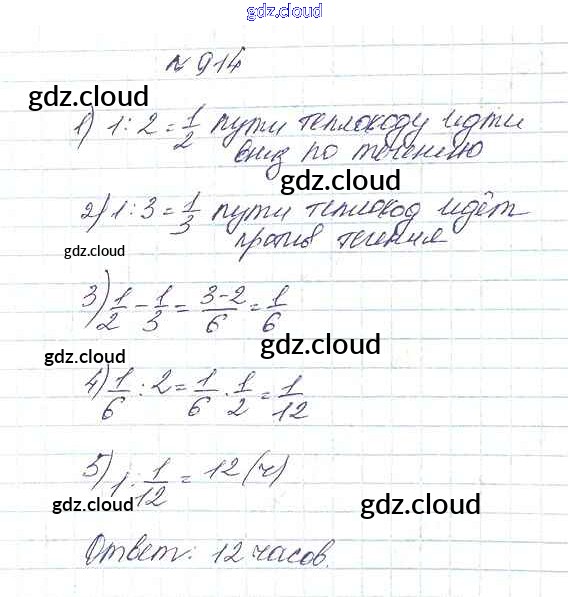 gdz.cloud
№ 914
gdz.cloud
1) 1 : 2 = 1/2 пути теплоходу идти
вниз по течению
gdz.cloud
2) 1 : 3 = 1/3 пути теплоход идёт
против течения
gdz.cloud
3) 1/2 - 1/3 = (3-2)/6 = 1/6
gdz.cloud
gdz.cloud
4) 1/6 : 2 = 1/6 · 1/2 = 1/12
5) 1 : 1/12 = 12 (ч)
gdz.cloud
gdz.cloud
Ответ: 12 часов.